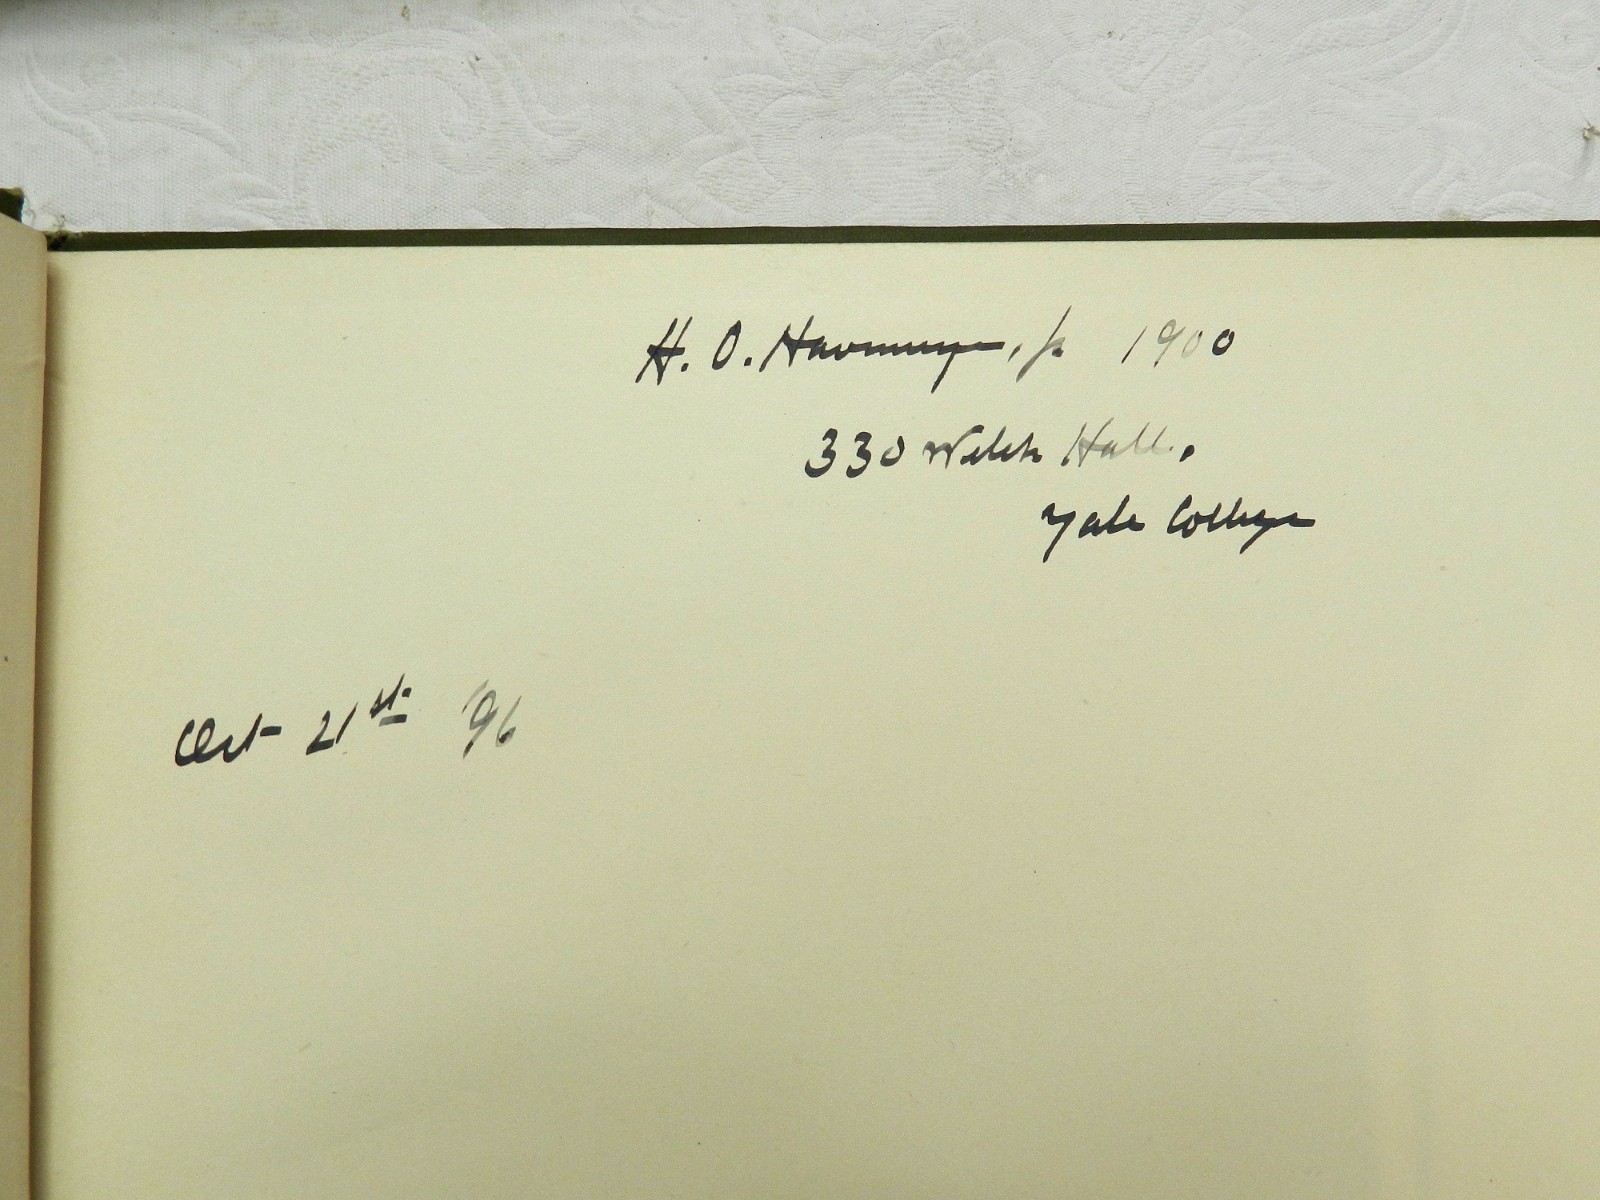 H. O. Havemeyer, Jr 1900
330 Welch Hall.
Yale College
Oct 21st '96